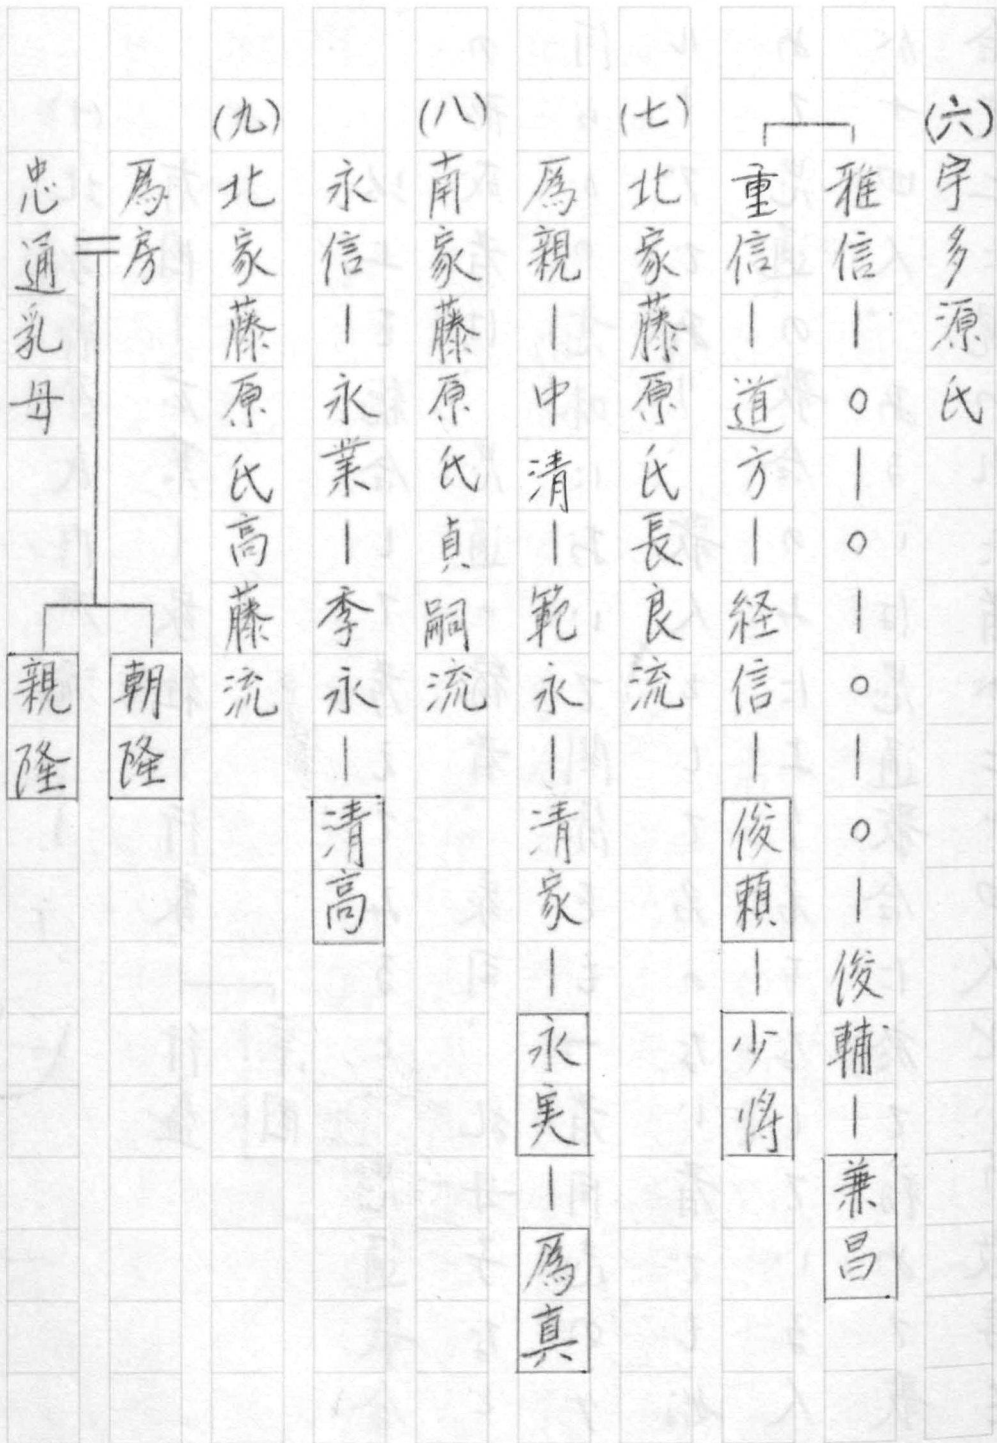 (六)宇多源氏
雅信―○―○―○―○―俊輔―兼昌
重信―道方―経信―俊頼―少将
(七)北家藤原氏長良流
爲親―中清―範永―清家―永実―爲真
(八)南家藤原氏貞嗣流
永信―永業―季永―清高
(九)北家藤原氏高藤流
爲房 朝隆
忠通乳母 親隆